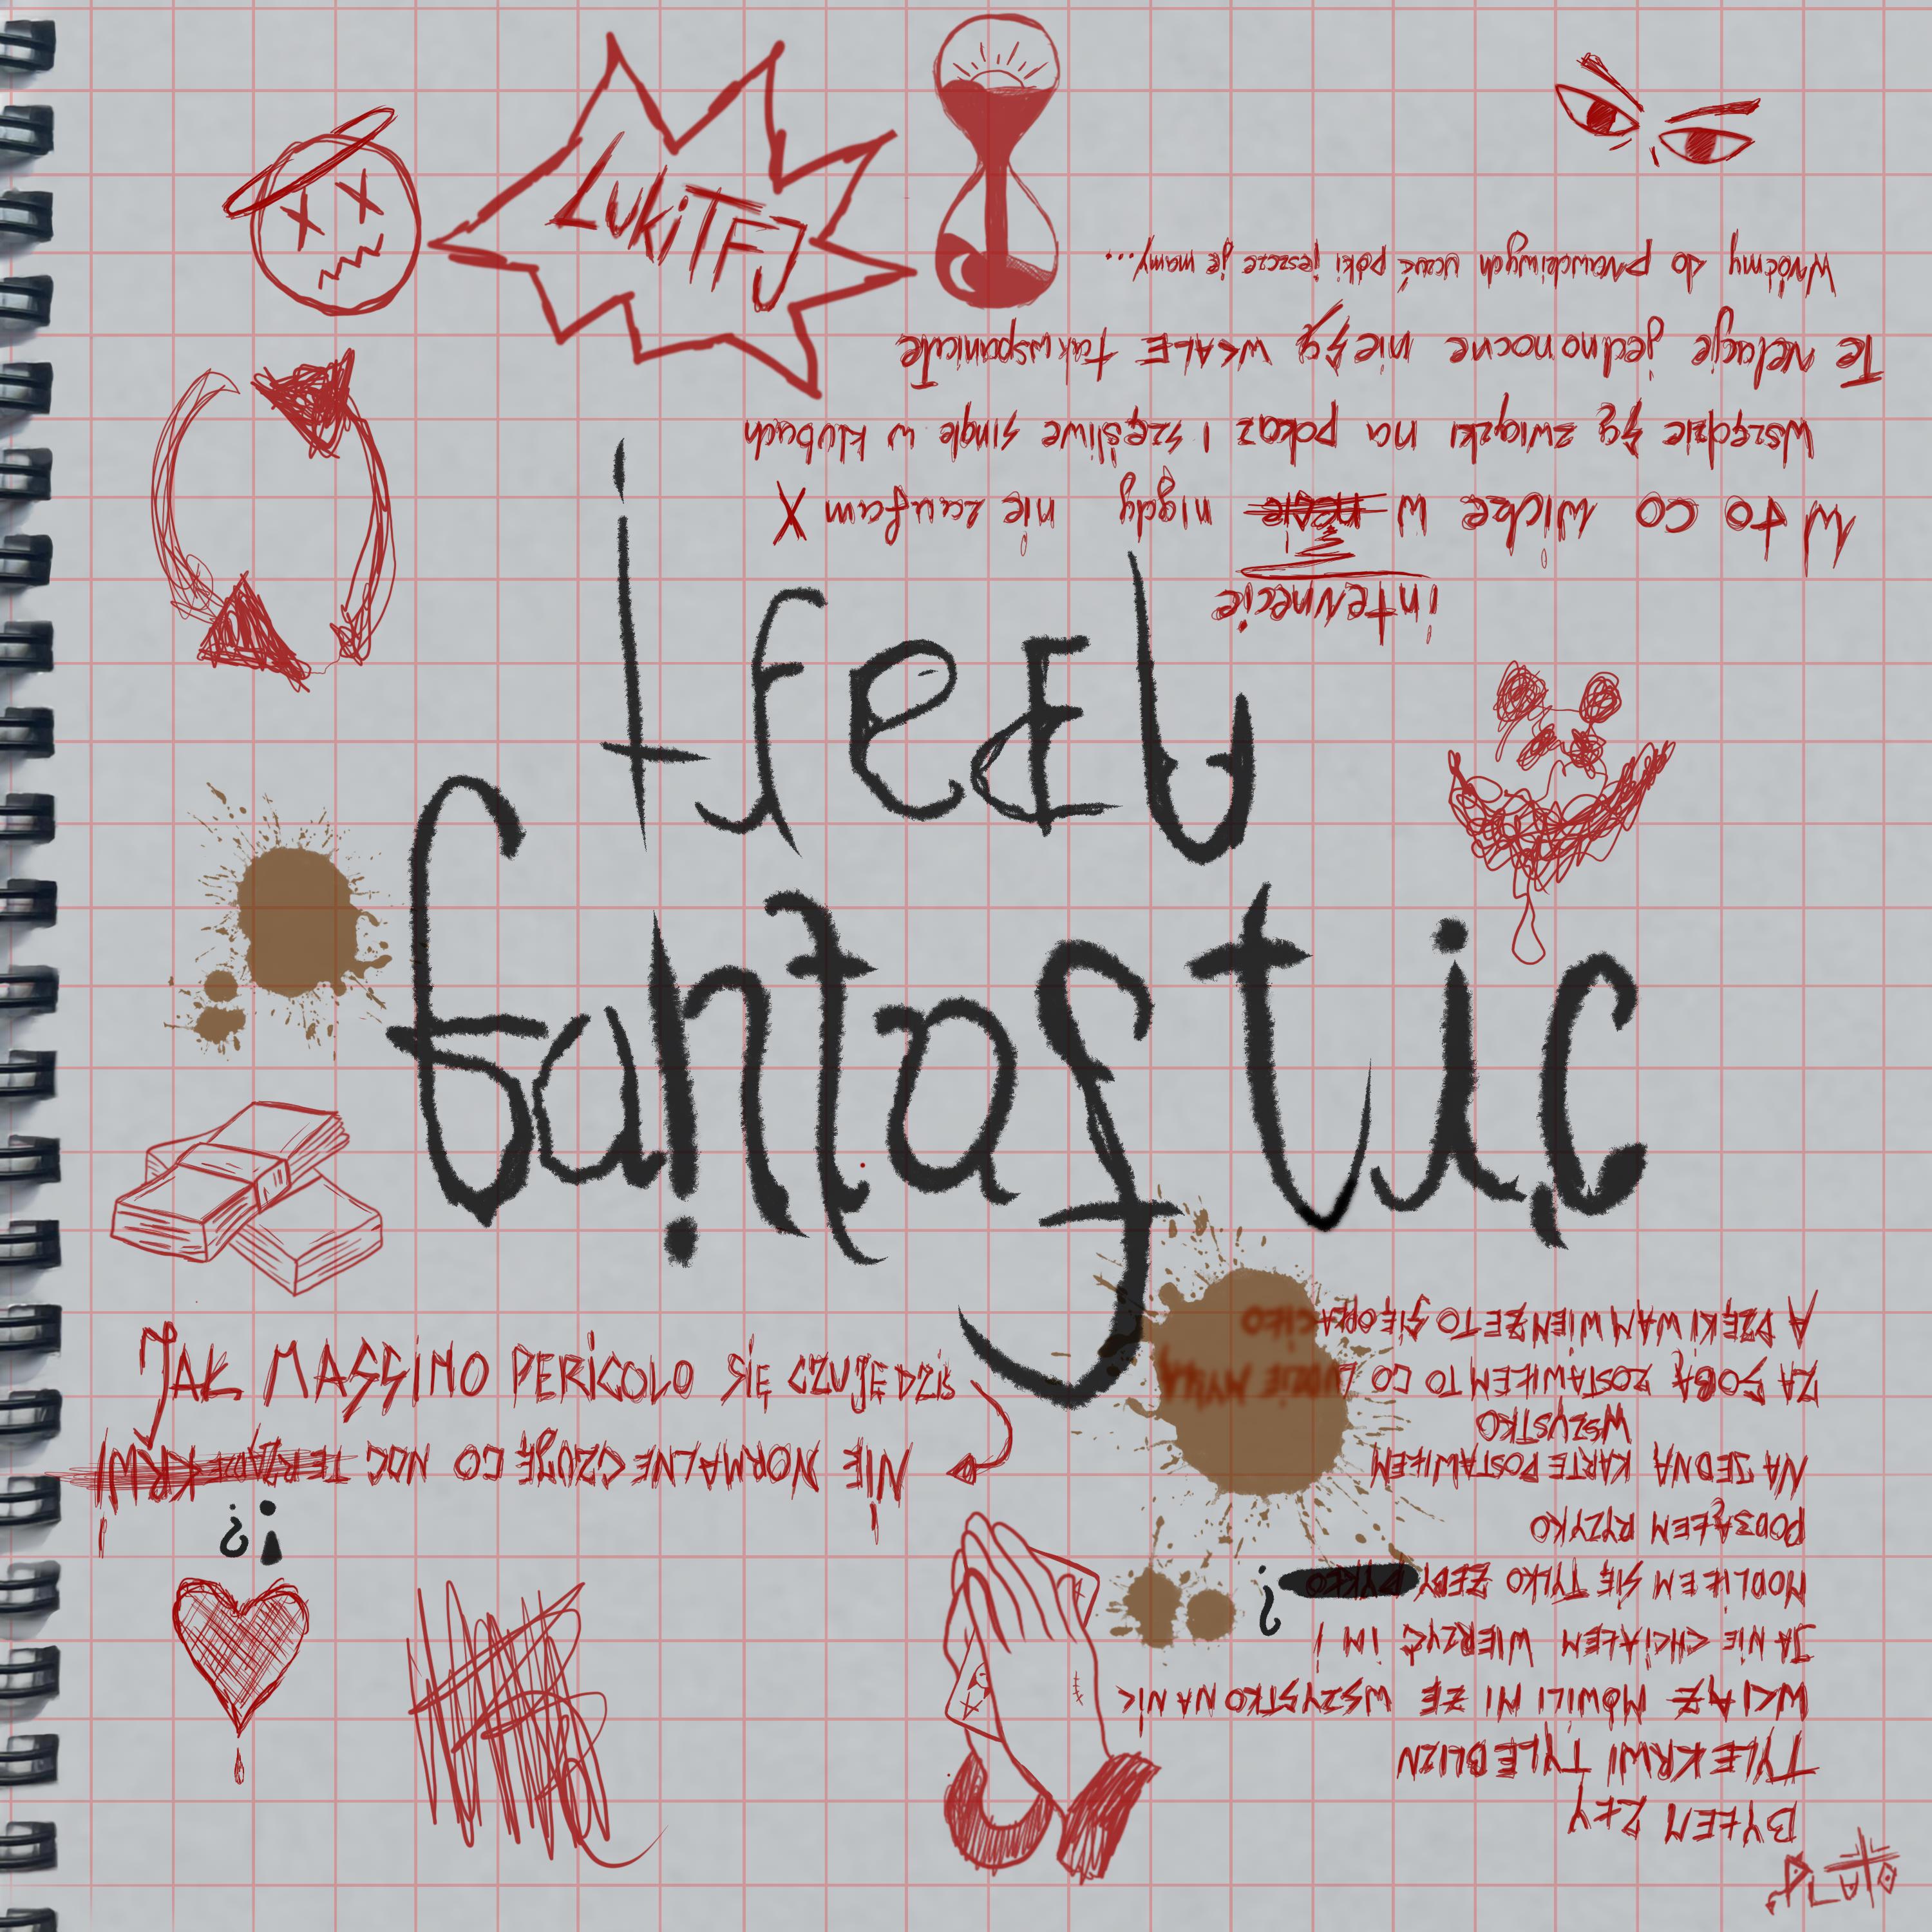 LUKiTFJ
I feel
fantastic
internecie
W to co widze w necie nigdy nie zaufam X
Wszędzie są związki na pokaz i szęśliwe single w klubach
Te relacje jednonocne nie są WCALE tak wspaniałe
Wróćmy do prawdziwych uczuć póki jeszcze je mamy...
JAK MASSIMO PERICOLO SIĘ CZUJĘ DZIŚ
NIE NORMALNE CZUJĘ CO NOC ŻĄDZE KRWI
?!
BYŁEM ZŁY
TYLE KRWI TYLE BLIZN
WCIĄŻ MÓWILI MI ŻE WSZYSTKO NA NIC
JA NIE CHCIAŁEM WIERZYĆ IM !
MODLIŁEM SIĘ TYLKO ŻEBY PYKŁO ?
PODJĄŁEM RYZYKO
NA JEDNĄ KARTE POSTAWIŁEM
WSZYSTKO
ZA SOBĄ ZOSTAWIŁEM TO CO LUDZIE MYŚLĄ
A DZĘKI WAM WIEM ŻE TO SIĘ OPŁA
CIŁO
PLUTO